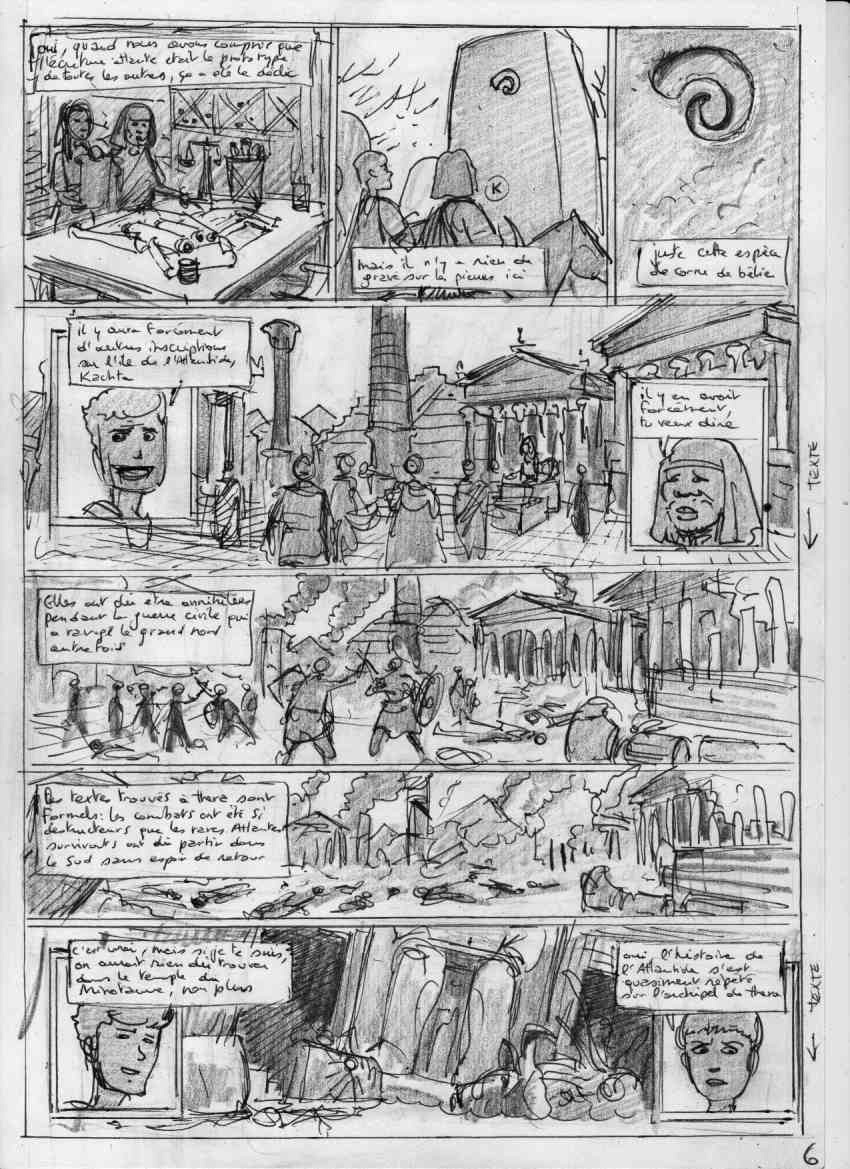 oui, quand nous avons compris que
l'écriture atlante était le prototype
de toutes les autres, ça a été le déclic
K
mais il n'y a rien de
gravé sur la pierre ici
juste cette espèce
de corne de bélier
il y aura forcément
d'autres inscriptions
sur l'île de l'Atlantide,
Kachta
il y en avait
forcément,
tu veux dire
← TEXTE
Elles ont dû être annihilées
pendant la guerre civile qui
a ravagé le grand nord
autrefois
Les textes trouvés à thera sont
formels: les combats ont été si
destructeurs que les rares Atlantes
survivants ont dû partir dans
le Sud sans espoir de retour
c'est vrai, mais si je te suis,
on aurait rien dû trouver
dans le temple du
Minotaure, non plus
oui l'histoire de
l'Atlantide s'est
quasiment répété
sur l'archipel de thera
← TEXTE
6